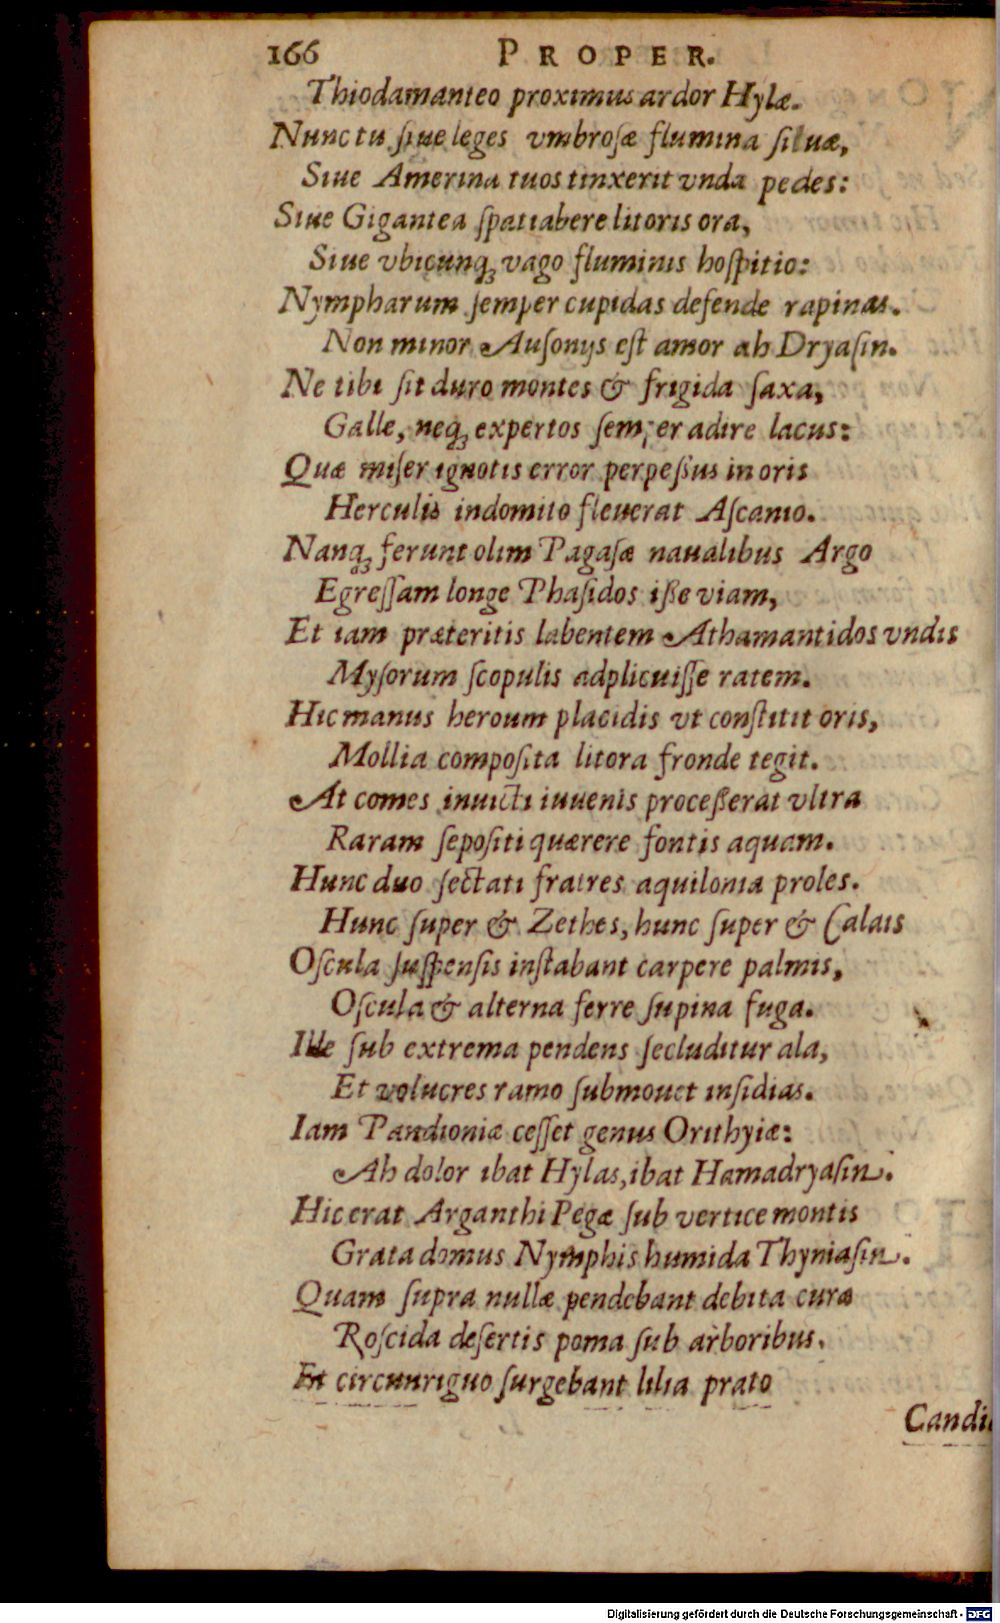 166 PROPER.
Thiodamanteo proximus ardor Hylæ.
Nunc tu ſiue leges vmbroſæ flumina ſiluæ,
Siue Amerina tuos tinxerit vnda pedes:
Siue Gigantea ſpatiabere litoris ora,
Siue vbicunq; vago fluminis hoſpitio:
Nympharum ſemper cupidas defende rapinas.
Non minor Auſonijs eſt amor ah Dryaſin.
Ne tibi ſit duro montes & frigida ſaxa,
Galle, neq; expertos ſemper adire lacus:
Quæ miſer ignotis error perpeſſus in oris
Herculis indomito fleuerat Aſcanio.
Nanq; ferunt olim Pagaſæ naualibus Argo
Egreſſam longe Phaſidos iſſe viam,
Et iam præteritis labentem Athamantidos vndis
Myſorum ſcopulis adplicuiſſe ratem.
Hic manus heroum placidis vt conſtitit oris,
Mollia compoſita litora fronde tegit.
At comes inuicti iuuenis proceſſerat vltra
Raram ſepoſiti quærere fontis aquam.
Hunc duo ſectati fratres aquilonia proles.
Hunc ſuper & Zethes, hunc ſuper & Calais
Oſcula ſuſpenſis inſtabant carpere palmis,
Oſcula & alterna ferre ſupina fuga.
Ille ſub extrema pendens ſecluditur ala,
Et volucres ramo ſubmouet inſidias.
Iam Pandioniæ ceſſet genus Orithyiæ:
Ah dolor ibat Hylas, ibat Hamadryaſin.
Hic erat Arganthi Pegæ ſub vertice montis
Grata domus Nymphis humida Thyniaſin.
Quam ſupra nullæ pendebant debita curæ
Roſcida deſertis poma ſub arboribus.
Et circunriguo ſurgebant lilia prato
Candi
Digitalisierung gefördert durch die Deutsche Forschungsgemeinschaft - DFG